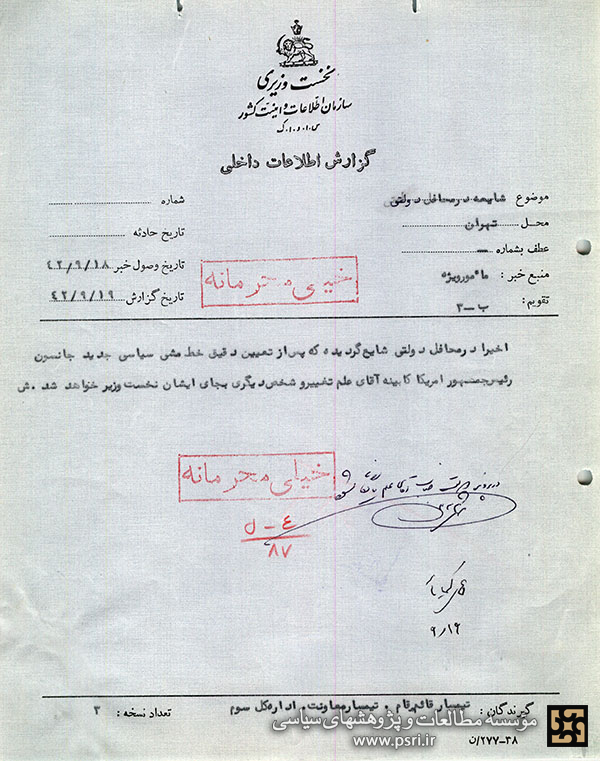 نخست وزیری
سازمان اطلاعات و امنیت کشور
س.ا.و.ا.ک
گزارش اطلاعات داخلی
موضوع شایعه در محافل دولتی
شماره
محل تهران
تاریخ حادثه
عطف بشماره —
تاریخ وصول خبر ۴۲/۹/۱۸
منبع خبر : مأمور ویژه
تاریخ گزارش ۴۲/۹/۱۹
تقویم : ب-۳
خیلی محرمانه
اخیرا در محافل دولتی شایع گردیده که پس از تعیین دقیق خط مشی سیاسی جدید جانسون
رئیس جمهور امریکا کابینه آقای علم تغییر و شخص دیگری بجای ایشان نخست وزیر خواهد شد . ش
خیلی محرمانه
در پرونده آقای علم بایگانی شود
ع - ل
۸۷
۹/۱۹
گیرندگان : تیمسار قائم مقام . تیمسار معاونت . اداره کل سوم
تعداد نسخه : ۳
موسسه مطالعات و پژوهشهای سیاسی
www.psri.ir
۳۸-۲۷۷/ن